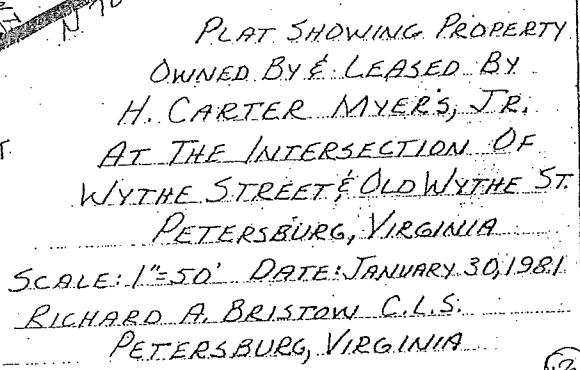 N 70
PLAT SHOWING PROPERTY
OWNED BY & LEASED BY
H. CARTER MYERS, JR.
AT THE INTERSECTION OF
WYTHE STREET & OLD WYTHE ST.
PETERSBURG, VIRGINIA
SCALE: 1"=50' DATE: JANUARY 30, 1981
RICHARD A. BRISTOW C.L.S.
PETERSBURG, VIRGINIA